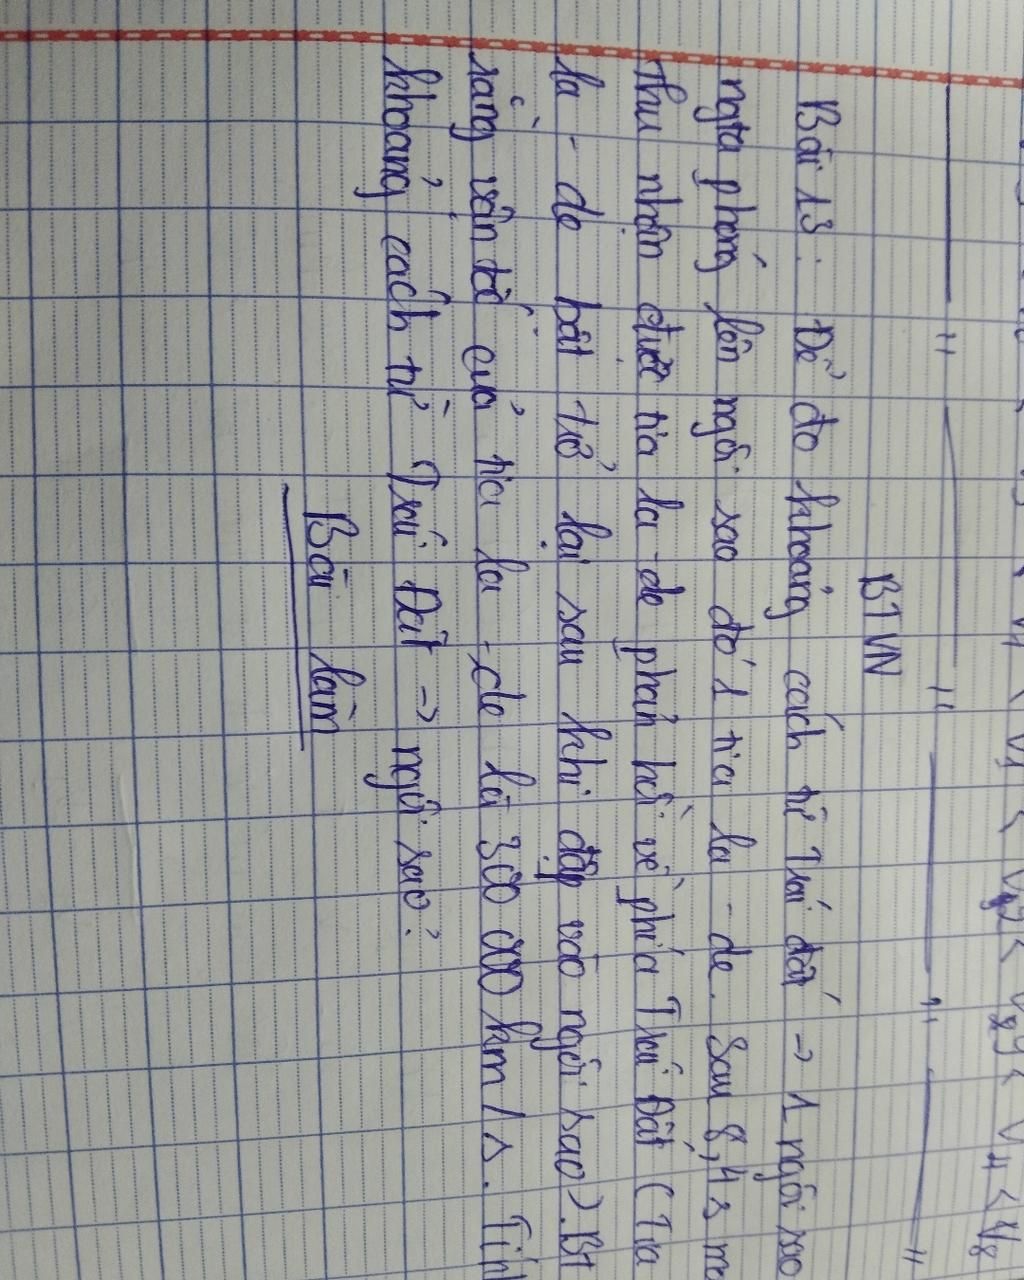 BTVN
Bài 13: Để đo khoảng cách từ Trái đất → 1 ngôi sao
ngta phóng lên ngôi sao đó 1 tia la-de. Sau 8,4s
thu nhận được tia la-de phản hồi về phía Trái Đất (Tia
la-de bật trở lại sau khi đập vào ngôi sao). Bt
rằng vận tốc của tia la-de là 300 000 km/s. Tính
khoảng cách từ Trái Đất → ngôi sao?
Bài làm